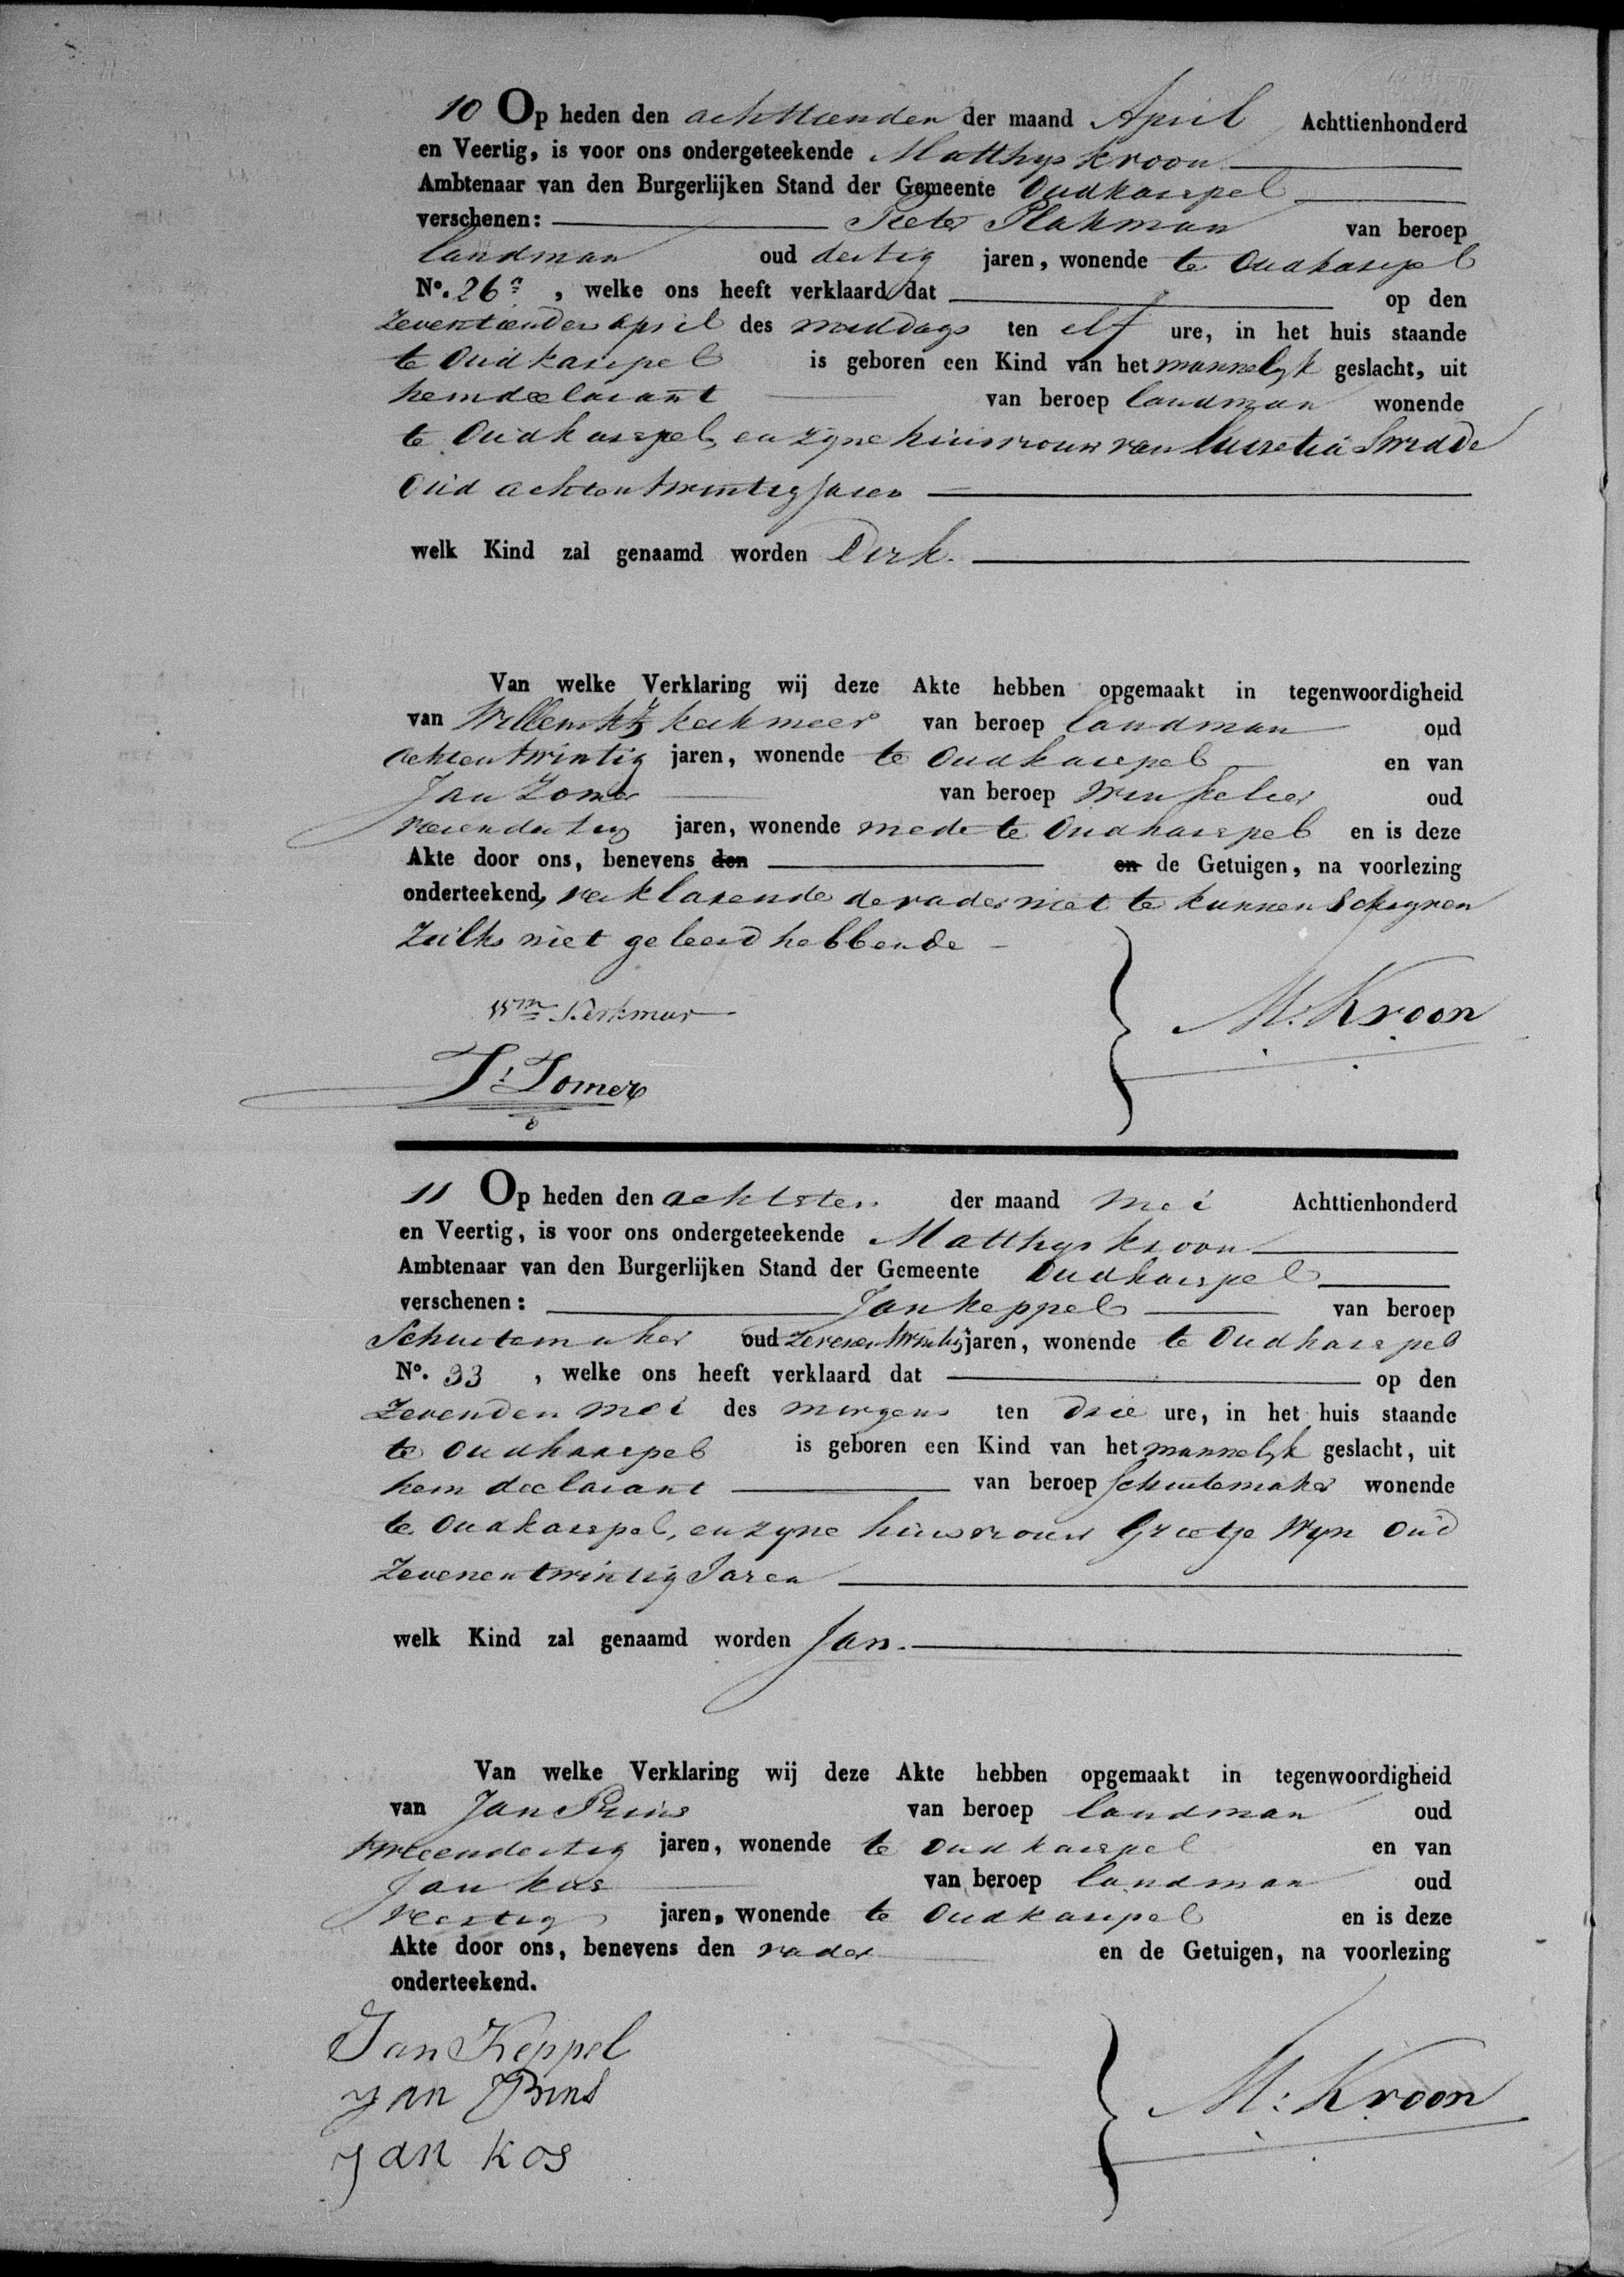 10 Op heden den achttienden der maand April Achttienhonderd
en Veertig, is voor ons ondergeteekende Matthijs Kroon
Ambtenaar van den Burgerlijken Stand der Gemeente Oudkarspel
verschenen: Pieter Plakman van beroep
landman oud dertig jaren, wonende te Oudkarspel
No. 26a, welke ons heeft verklaard dat op den
Zeventienden April des middags ten elf ure, in het huis staande
te Oudkarspel is geboren een Kind van het mannelyk geslacht, uit
hem declarant van beroep landman wonende
te Oudkarspel, en zyne huisvrouw van Lucretia
Oud achtentwintig Jaren
welk Kind zal genaamd worden Dirk.
Van welke Verklaring wij deze Akte hebben opgemaakt in tegenwoordigheid
van Willem Kerkmeer van beroep landman oud
achtentwintig jaren, wonende te Oudkarspel en van
Jan Zomer van beroep Winkelier oud
vierendertig jaren, wonende mede te Oudkarspel en is deze
Akte door ons, benevens den en de Getuigen, na voorlezing
onderteekend, verklarende de vader niet te kunnen Schryven
Zulks niet geleerd hebbende
Wm Kerkmeer
M: Kroon
J: Zomer
11 Op heden den achtsten der maand Mei Achttienhonderd
en Veertig, is voor ons ondergeteekende Matthys Kroon
Ambtenaar van den Burgerlijken Stand der Gemeente Oudkarspel
verschenen: Jan Keppel van beroep
Schuitemaker oud Zevenentwintig jaren, wonende te Oudkarspel
No. 33, welke ons heeft verklaard dat op den
Zevenden Mei des morgens ten drie ure, in het huis staande
te Oudkarspel is geboren een Kind van het mannelyk geslacht, uit
hem declarant van beroep Schuitemaker wonende
te Oudkarspel, en zyne huisvrouw Grietje Wyn Oud
Zevenentwintig Jaren
welk Kind zal genaamd worden Jan.
Van welke Verklaring wij deze Akte hebben opgemaakt in tegenwoordigheid
van Jan Prins van beroep landman oud
tweendertig jaren, wonende te Oudkarspel en van
Jan Kos van beroep landman oud
Veertig jaren, wonende te Oudkarspel en is deze
Akte door ons, benevens den vader en de Getuigen, na voorlezing
onderteekend.
Jan Keppel
Jan Prins
M: Kroon
Jan Kos